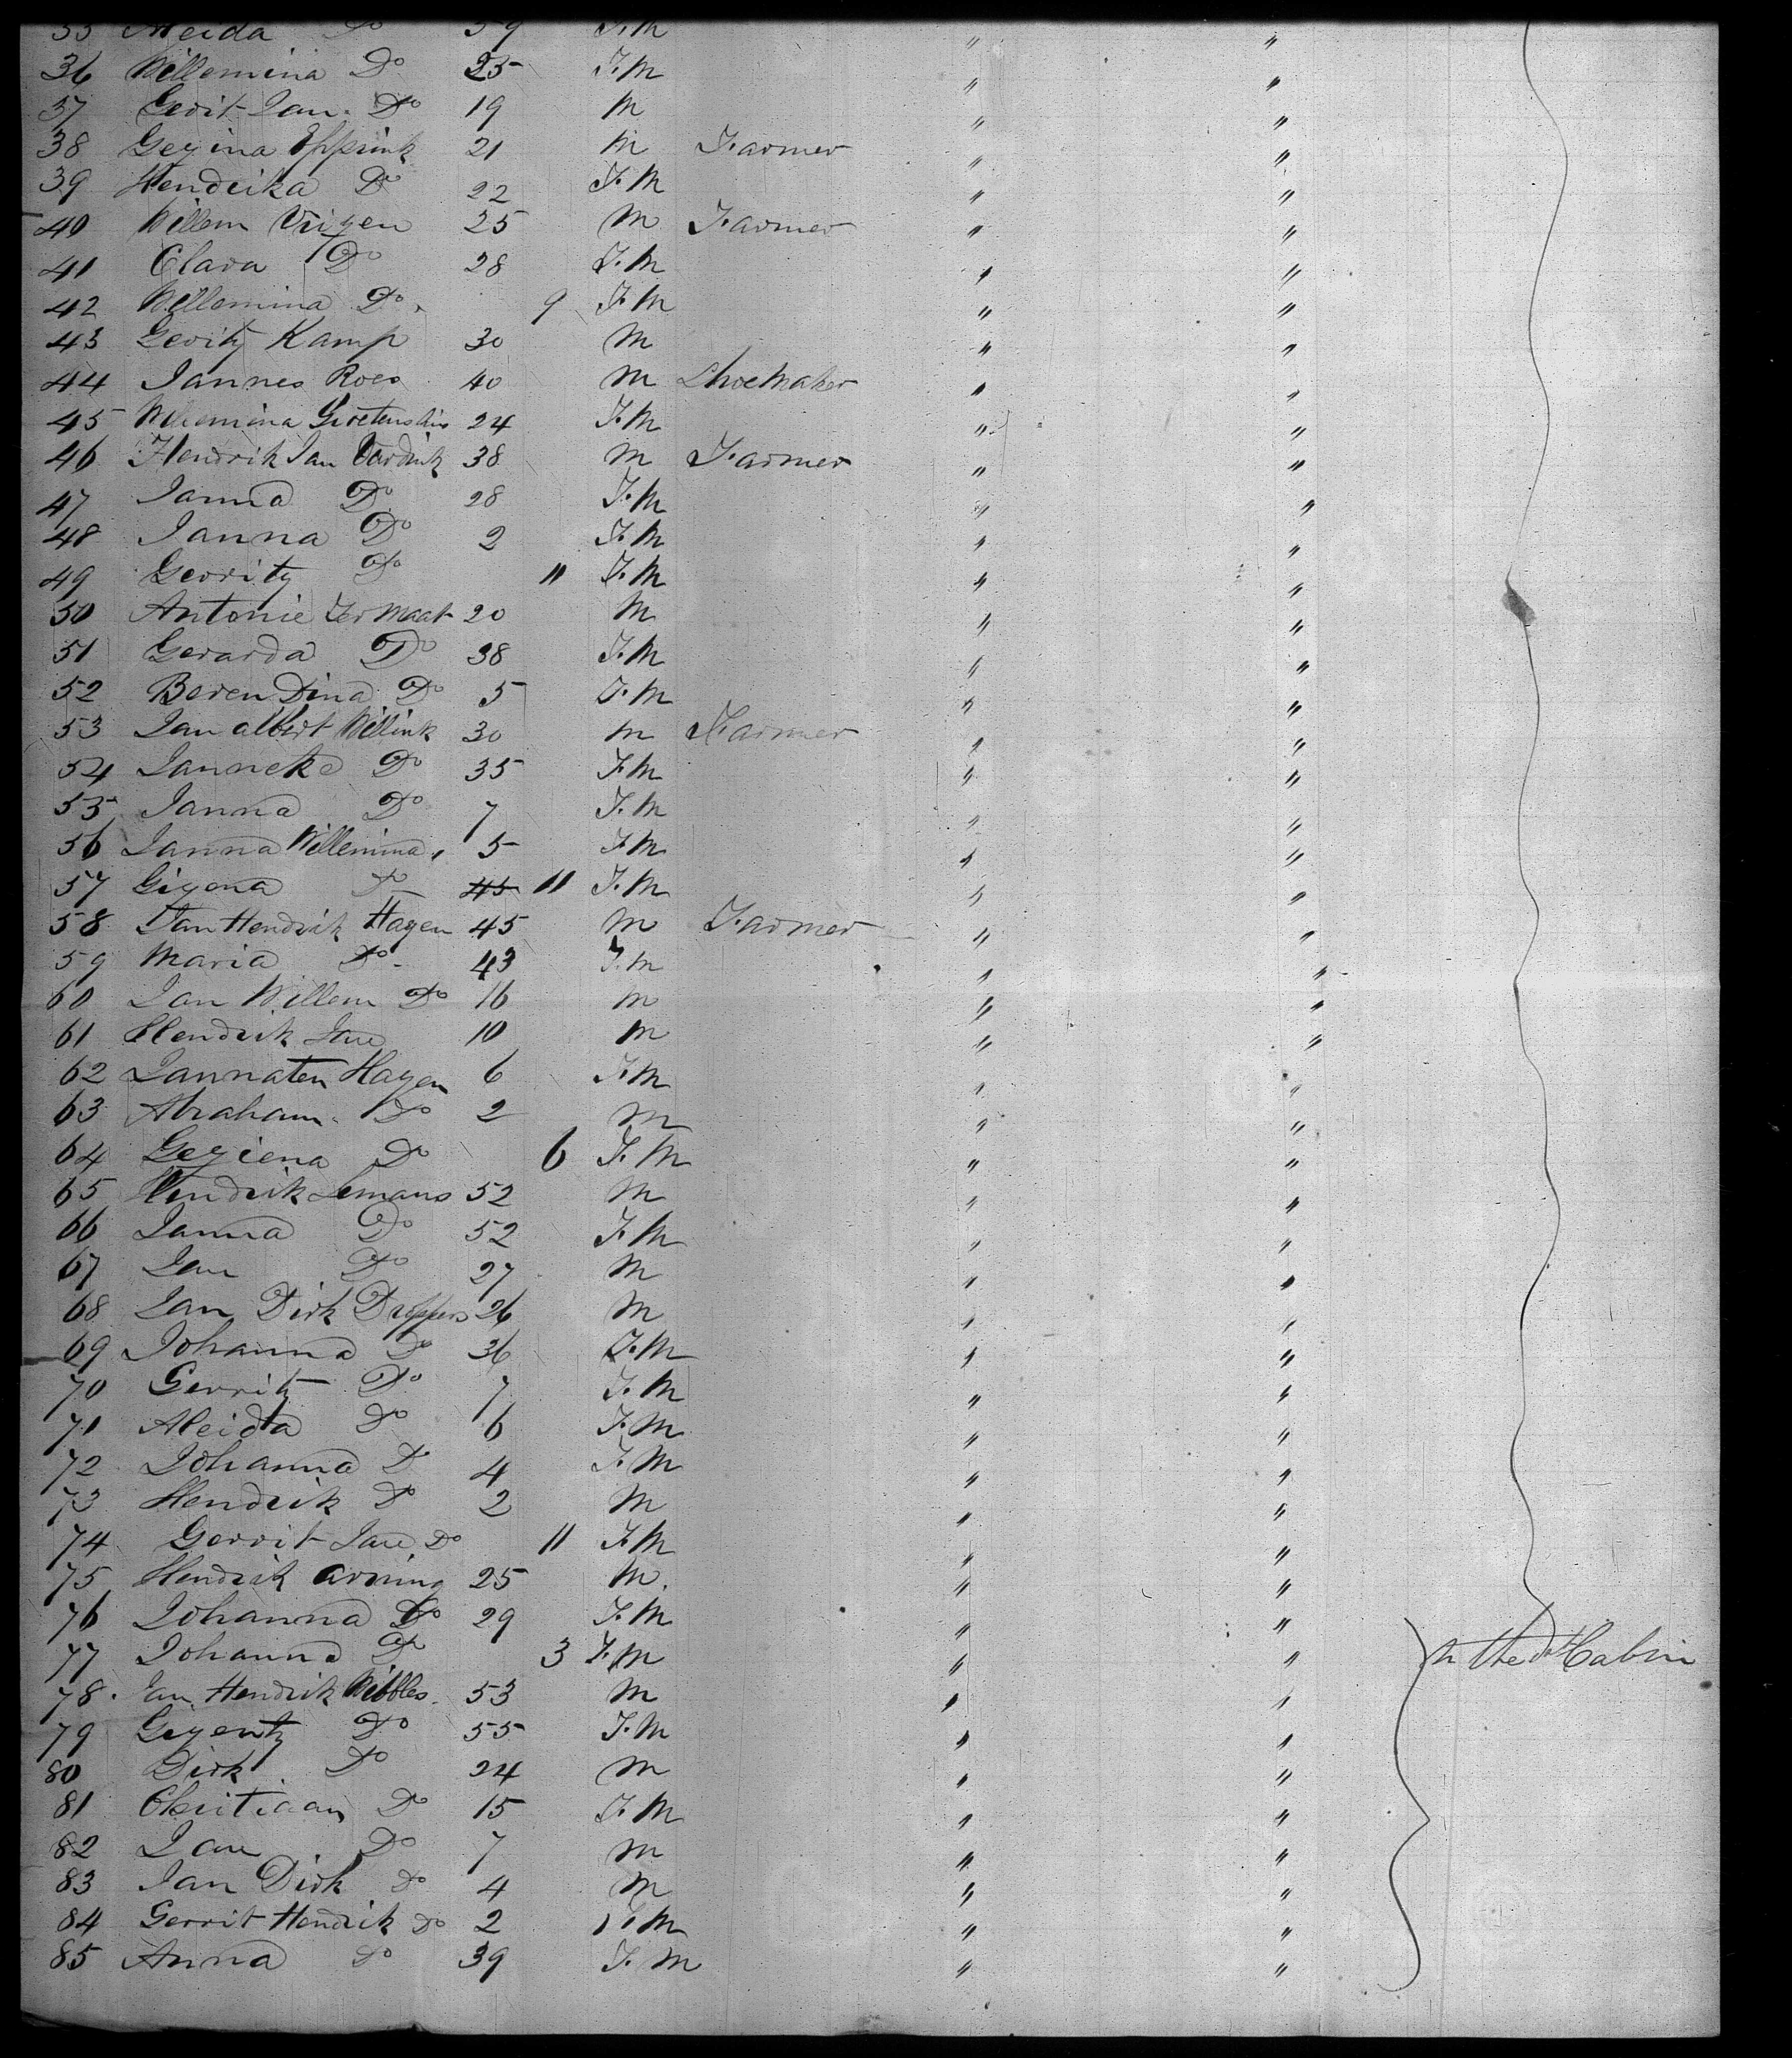 35 Aleida Do 59 F.M " "
36 Willemina Do 25 F.M " "
37 Gerit Jan Do 19 M " "
38 Gezina Eppink 21 M Farmer " "
39 Hendrika Do 22 F.M " "
40 Willem Vrigen 25 M Farmer " "
41 Clara Do 28 F.M " "
42 Willemina Do 9 F.M " "
43 Geritz Kamp 30 M " "
44 Jannes Roes 40 M Shoemaker " "
45 Willemina 24 F.M " "
46 Hendrik Jan 38 M Farmer " "
47 Janna Do 28 F.M " "
48 Janna Do 2 F.M " "
49 Gerritz Do 11 F.M " "
50 Antonie Ter Maat 20 M " "
51 Gerarda Do 38 F.M " "
52 Beren Dina Do 5 F.M " "
53 Jan albert Willink 30 M Farmer " "
54 Janneke Do 35 F.M " "
55 Janna Do 7 F.M " "
56 Janna Willemina " 5 F.M " "
57 Gigena Do 45 11 F.M " "
58 Jan Hendrik Hagen 45 M Farmer " "
59 Maria Do 43 F.M " "
60 Jan Willem Do 16 M " "
61 Hendrik Jan 10 M " "
62 Janna ten Hagen 6 F.M " "
63 Abraham Do 2 M " "
64 Geziena Do 6 F.M " "
65 Hendrik Lemans 52 M " "
66 Janna Do 52 F.M " "
67 Jan Do 27 M " "
68 Jan Dirk Droppers 26 M " "
69 Johanna Do 36 F.M " "
70 Gerritz Do 7 F.M " "
71 Aleida Do 6 F.M " "
72 Johanna Do 4 F.M " "
73 Hendrik Do 2 M " "
74 Gerrit Jan Do 11 F.M " "
75 Hendrik Arning 25 M. " "
76 Johanna Do 29 F.M " "
77 Johanna Do 3 F.M " " In the Cabin
78 Jan Hendrik Wibbles 53 M " "
79 Gigentz Do 55 F.M " "
80 Dirk Do 24 M " "
81 Christiaan Do 15 F.M " "
82 Jan Do 7 M " "
83 Jan Dirk Do 4 M " "
84 Gerrit Hendrik Do 2 F.M " "
85 Anna Do 39 F.M " "